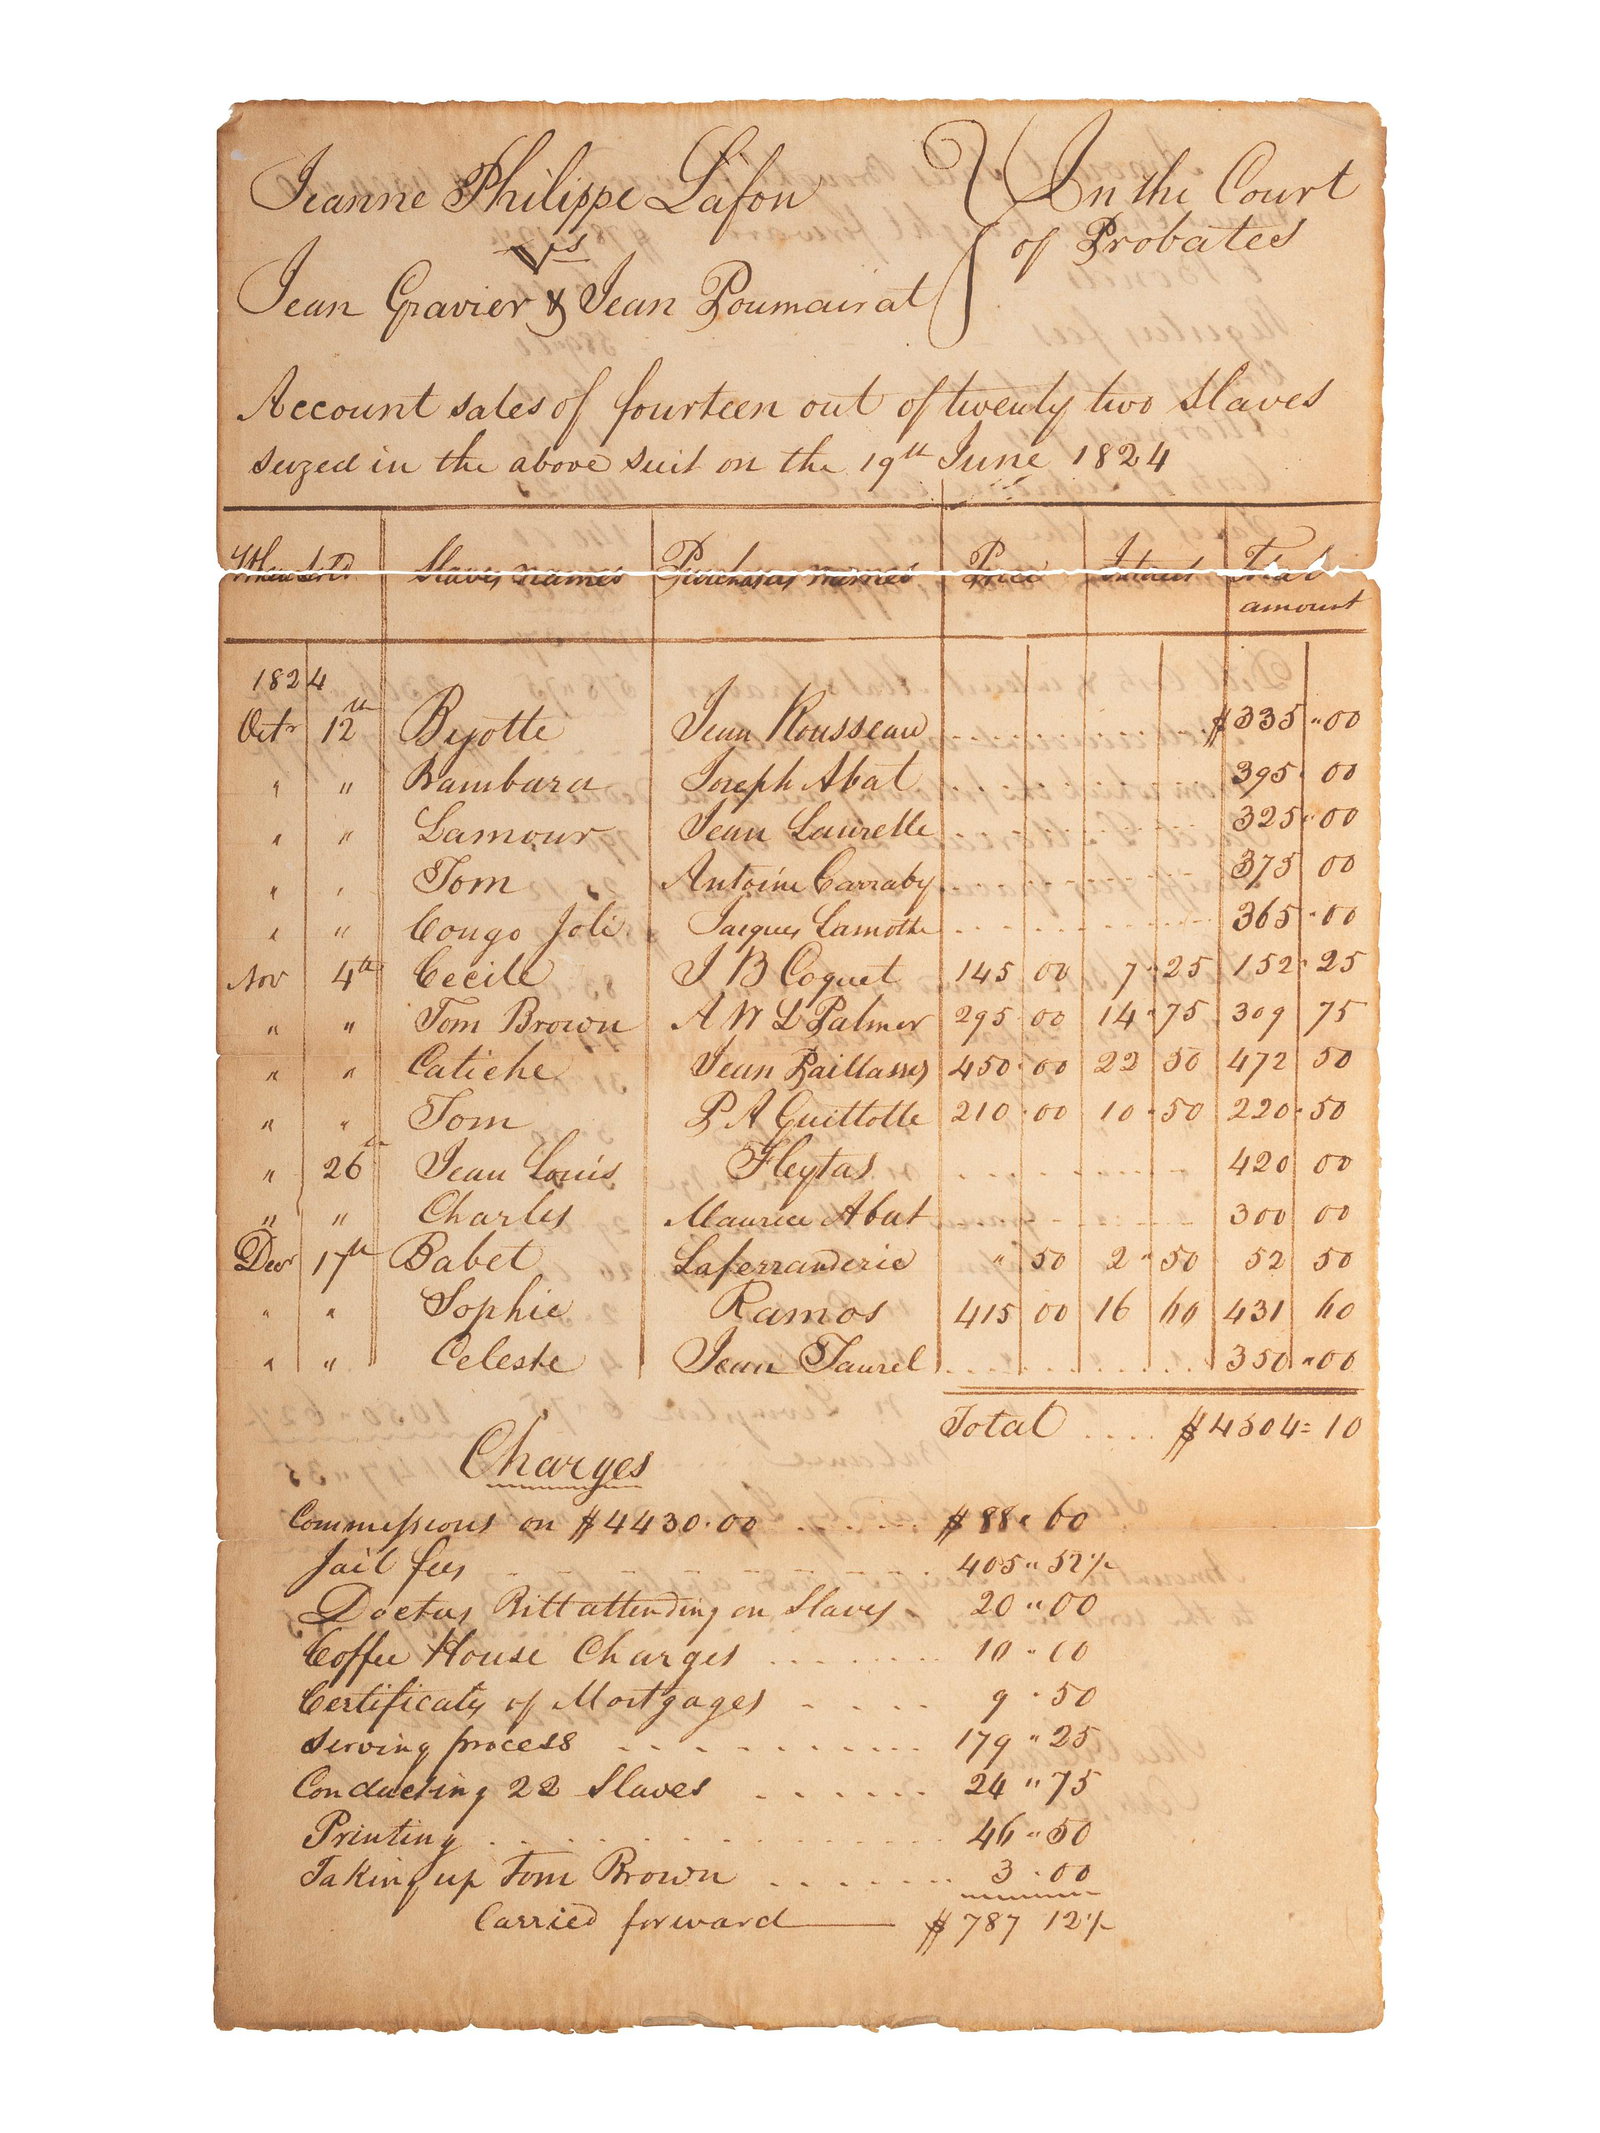 Jeanne Philippe Lafon
vs
Jean Gravier & Jean Poumairat
In the Court
of Probates
Account sales of fourteen out of twenty two Slaves
seized in the above suit on the 19th June 1824
When Sold Slaves names Purchasers names Price Interest Total
amount
1824
Octr 12th Byotte Jean Rousseau $335 " 00
" " Bambara Joseph Abat 395 " 00
" " Lamour Jean Laurette 325 " 00
" " Tom Antoine Carraby 375 00
" " Congo Joli Jacques Lamothe 365 " 00
Nov 4th Cecile J B Coquet 145 00 7 " 25 152 " 25
" " Tom Brown A W L Palmer 295 00 14 " 75 309 75
" " Catiche Jean Paillasses 450 " 00 22 50 472 50
" " Tom P A Guillotte 210 " 00 10 " 50 220 " 50
" 26th Jean Louis Fleytas 420 00
" " Charles Maurice Abat 300 00
Decr 17th Babet Laferranderie " 50 2 " 50 52 50
" " Sophie Ramos 415 00 16 60 431 60
" " Celeste Jean Taurel 350 " 00
Total .... $4504 = 10
Charges
Commissions on $4430.00 ..... $88 " 60
Jail fees 405 " 52½
Doctus Ritt attending on Slaves 20 " 00
Coffee House Charges ....... 10 " 00
Certificates of Mortgages .... 9 " 50
Serving process ....... 179 " 25
Conducting 22 Slaves ...... 24 " 75
Printing ............ 46 " 50
Taking up Tom Brown ....... 3 " 00
Carried forward $787 12½